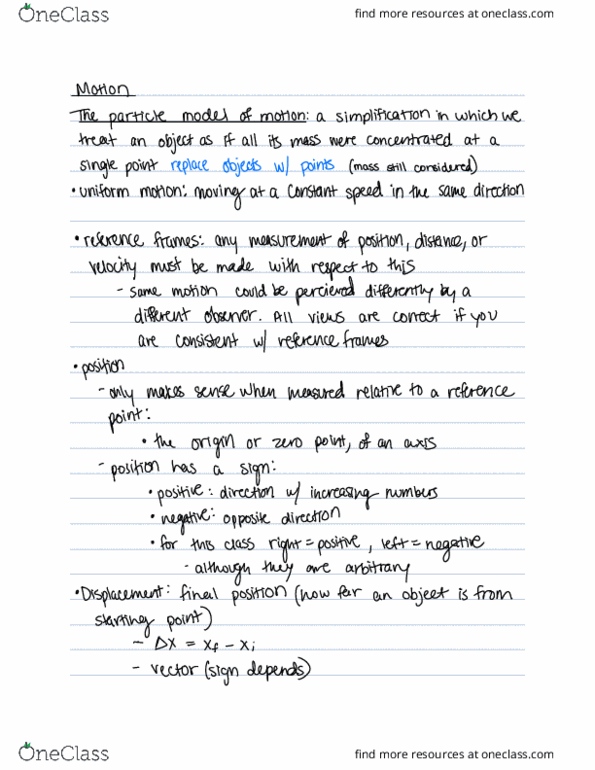 OneClass
find more resources at oneclass.com
Motion
The particle model of motion: a simplification in which we
treat an object as if all its mass were concentrated at a
single point replace objects w/ points (mass still considered)
• uniform motion: moving at a constant speed in the same direction
• reference frames: any measurement of position, distance, or
velocity must be made with respect to this
- same motion could be perciered differently by a
different observer. All views are correct if you
are consistent w/ reference frames
• position
- only makes sense when measured relative to a reference
point:
• the origin or zero point, of an axis
- position has a sign:
• positive: direction w/ increasing numbers
• negative: opposite direction
• for this class right = positive, left = negative
- although they are arbitrary
• Displacement: final position (how far an object is from
starting point)
- Δx = xf - xi
- vector (sign depends)
OneClass
find more resources at oneclass.com